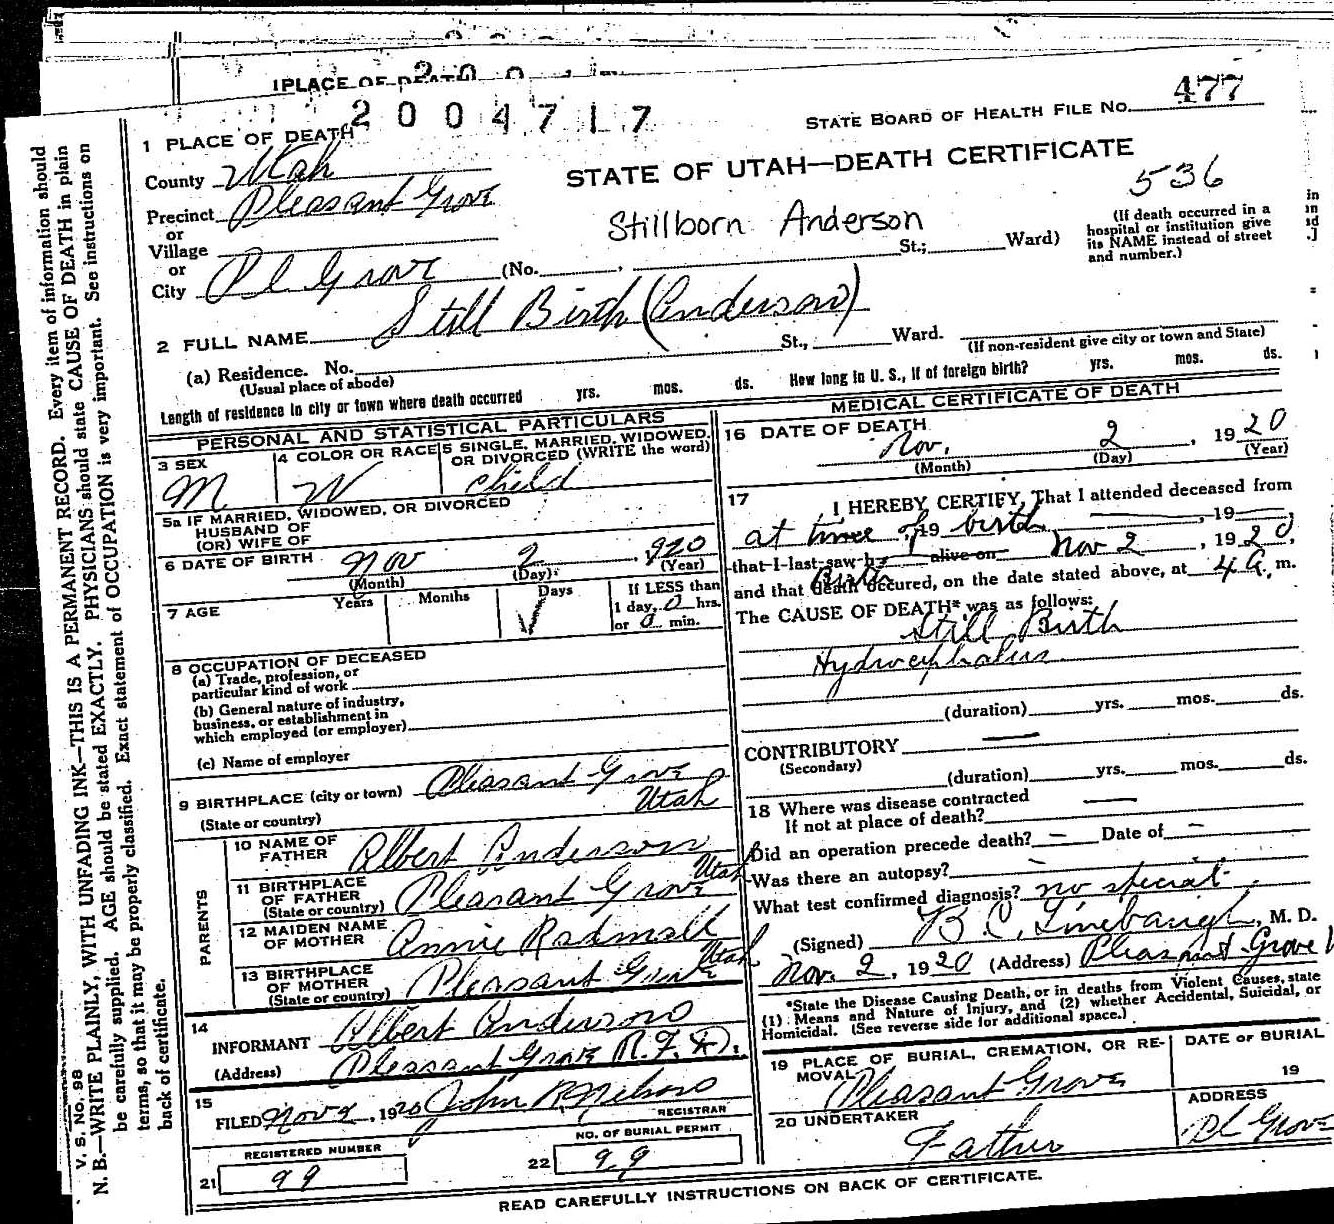 1 PLACE OF DEATH
2004717
STATE BOARD OF HEALTH FILE No. 477
1 PLACE OF DEATH
STATE OF UTAH—DEATH CERTIFICATE
536
County Utah
Precinct Pleasant Grove
or
Village
or
City Pl Grove (No. , St.; Ward)
Stillborn Anderson
(If death occurred in a
hospital or institution give
its NAME instead of street
and number.)
2 FULL NAME Still Birth (Anderson)
(a) Residence. No. St., Ward.
(Usual place of abode)
(If non-resident give city or town and State)
Length of residence in city or town where death occurred yrs. mos. ds. How long in U. S., if of foreign birth? yrs. mos. ds.
PERSONAL AND STATISTICAL PARTICULARS
3 SEX
M
4 COLOR OR RACE
W
5 SINGLE, MARRIED, WIDOWED,
OR DIVORCED (WRITE the word)
Child
5a IF MARRIED, WIDOWED, OR DIVORCED
HUSBAND OF
(OR) WIFE OF
6 DATE OF BIRTH Nov 2, 920
(Month) (Day) (Year)
7 AGE Years Months Days
If LESS than
1 day, 0 hrs.
or 0 min.
8 OCCUPATION OF DECEASED
(a) Trade, profession, or
particular kind of work
(b) General nature of industry,
business, or establishment in
which employed (or employer)
(c) Name of employer
9 BIRTHPLACE (city or town) Pleasant Grove
(State or country) Utah
PARENTS
10 NAME OF
FATHER Albert Anderson
11 BIRTHPLACE
OF FATHER Pleasant Grove Utah
(State or country)
12 MAIDEN NAME
OF MOTHER Annie Radmall
13 BIRTHPLACE
OF MOTHER Pleasant Grove Utah
(State or country)
14
INFORMANT Albert Anderson
(Address) Pleasant Grove R.F.D.
15
FILED Nov 2, 1920 John R Nelson
REGISTRAR
REGISTERED NUMBER
21 99
NO. OF BURIAL PERMIT
22 99
MEDICAL CERTIFICATE OF DEATH
16 DATE OF DEATH
Nov. 2, 1920
(Month) (Day) (Year)
17
I HEREBY CERTIFY, That I attended deceased from
at time of birth , 19 , 19 ,
that I last saw h alive on Nov 2, 1920,
and that death occured, on the date stated above, at 4 A. m.
Birth
The CAUSE OF DEATH* was as follows:
Still Birth
Hydrocephalus
(duration) yrs. mos. ds.
CONTRIBUTORY —
(Secondary)
(duration) yrs. mos. ds.
18 Where was disease contracted
If not at place of death? —
Did an operation precede death? — Date of —
Was there an autopsy? —
What test confirmed diagnosis? no special
(Signed) B. C. Linebaugh, M. D.
Nov. 2, 1920 (Address) Pleasant Grove U
*State the Disease Causing Death, or in deaths from Violent Causes, state
(1) Means and Nature of Injury, and (2) whether Accidental, Suicidal, or
Homicidal. (See reverse side for additional space.)
19 PLACE OF BURIAL, CREMATION, OR RE-
MOVAL
Pleasant Grove
DATE OF BURIAL
19
20 UNDERTAKER
Father
ADDRESS
Pl Grove
READ CAREFULLY INSTRUCTIONS ON BACK OF CERTIFICATE.
V. S. No. 98
N. B.—WRITE PLAINLY, WITH UNFADING INK—THIS IS A PERMANENT RECORD. Every item of information should
be carefully supplied. AGE should be stated EXACTLY. PHYSICIANS should state CAUSE OF DEATH in plain
terms, so that it may be properly classified. Exact statement of OCCUPATION is very important. See instructions on
back of certificate.